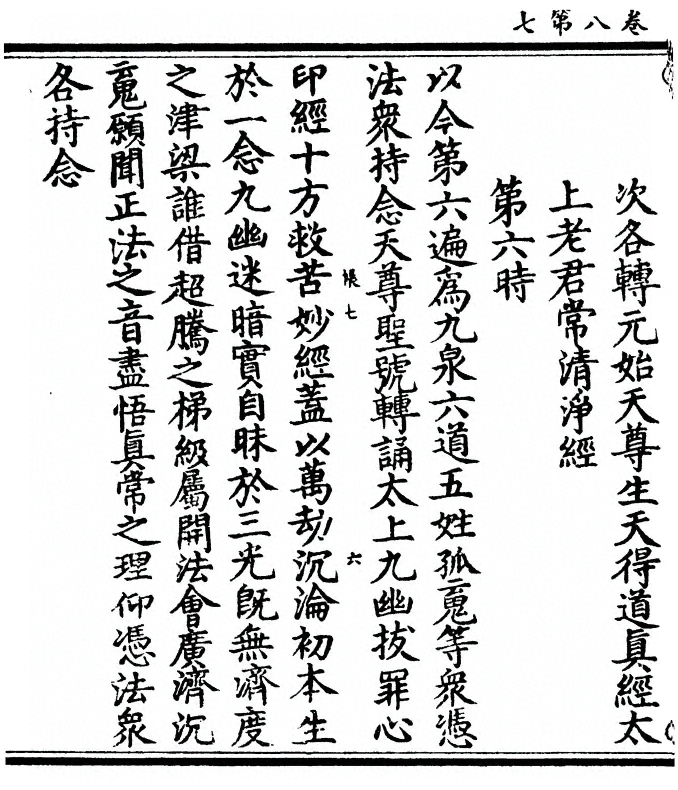 卷八第七
次各轉元始天尊生天得道眞經太
上老君常清淨經
第六時
以今第六遍爲九泉六道五姓孤䰟等衆憑
法衆持念天尊聖號轉誦太上九幽拔罪心
印經十方救苦妙經蓋以萬劫沉淪初本生
恨七
六
於一念九幽迷暗實自昧於三光旣無濟度
之津梁誰借超騰之梯級屬開法會廣濟沉
䰟願聞正法之音盡悟眞常之理仰憑法衆
各持念